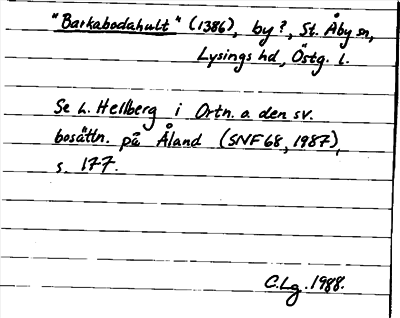 "Barkabodahult" (1386), by?, St. Åby sn,
Lysings hd, Östg. l.
Se L. Hellberg i Ortn. o. den sv.
bosättn. på Åland (SNF 68, 1987),
s. 177.
C.Lg. 1988.